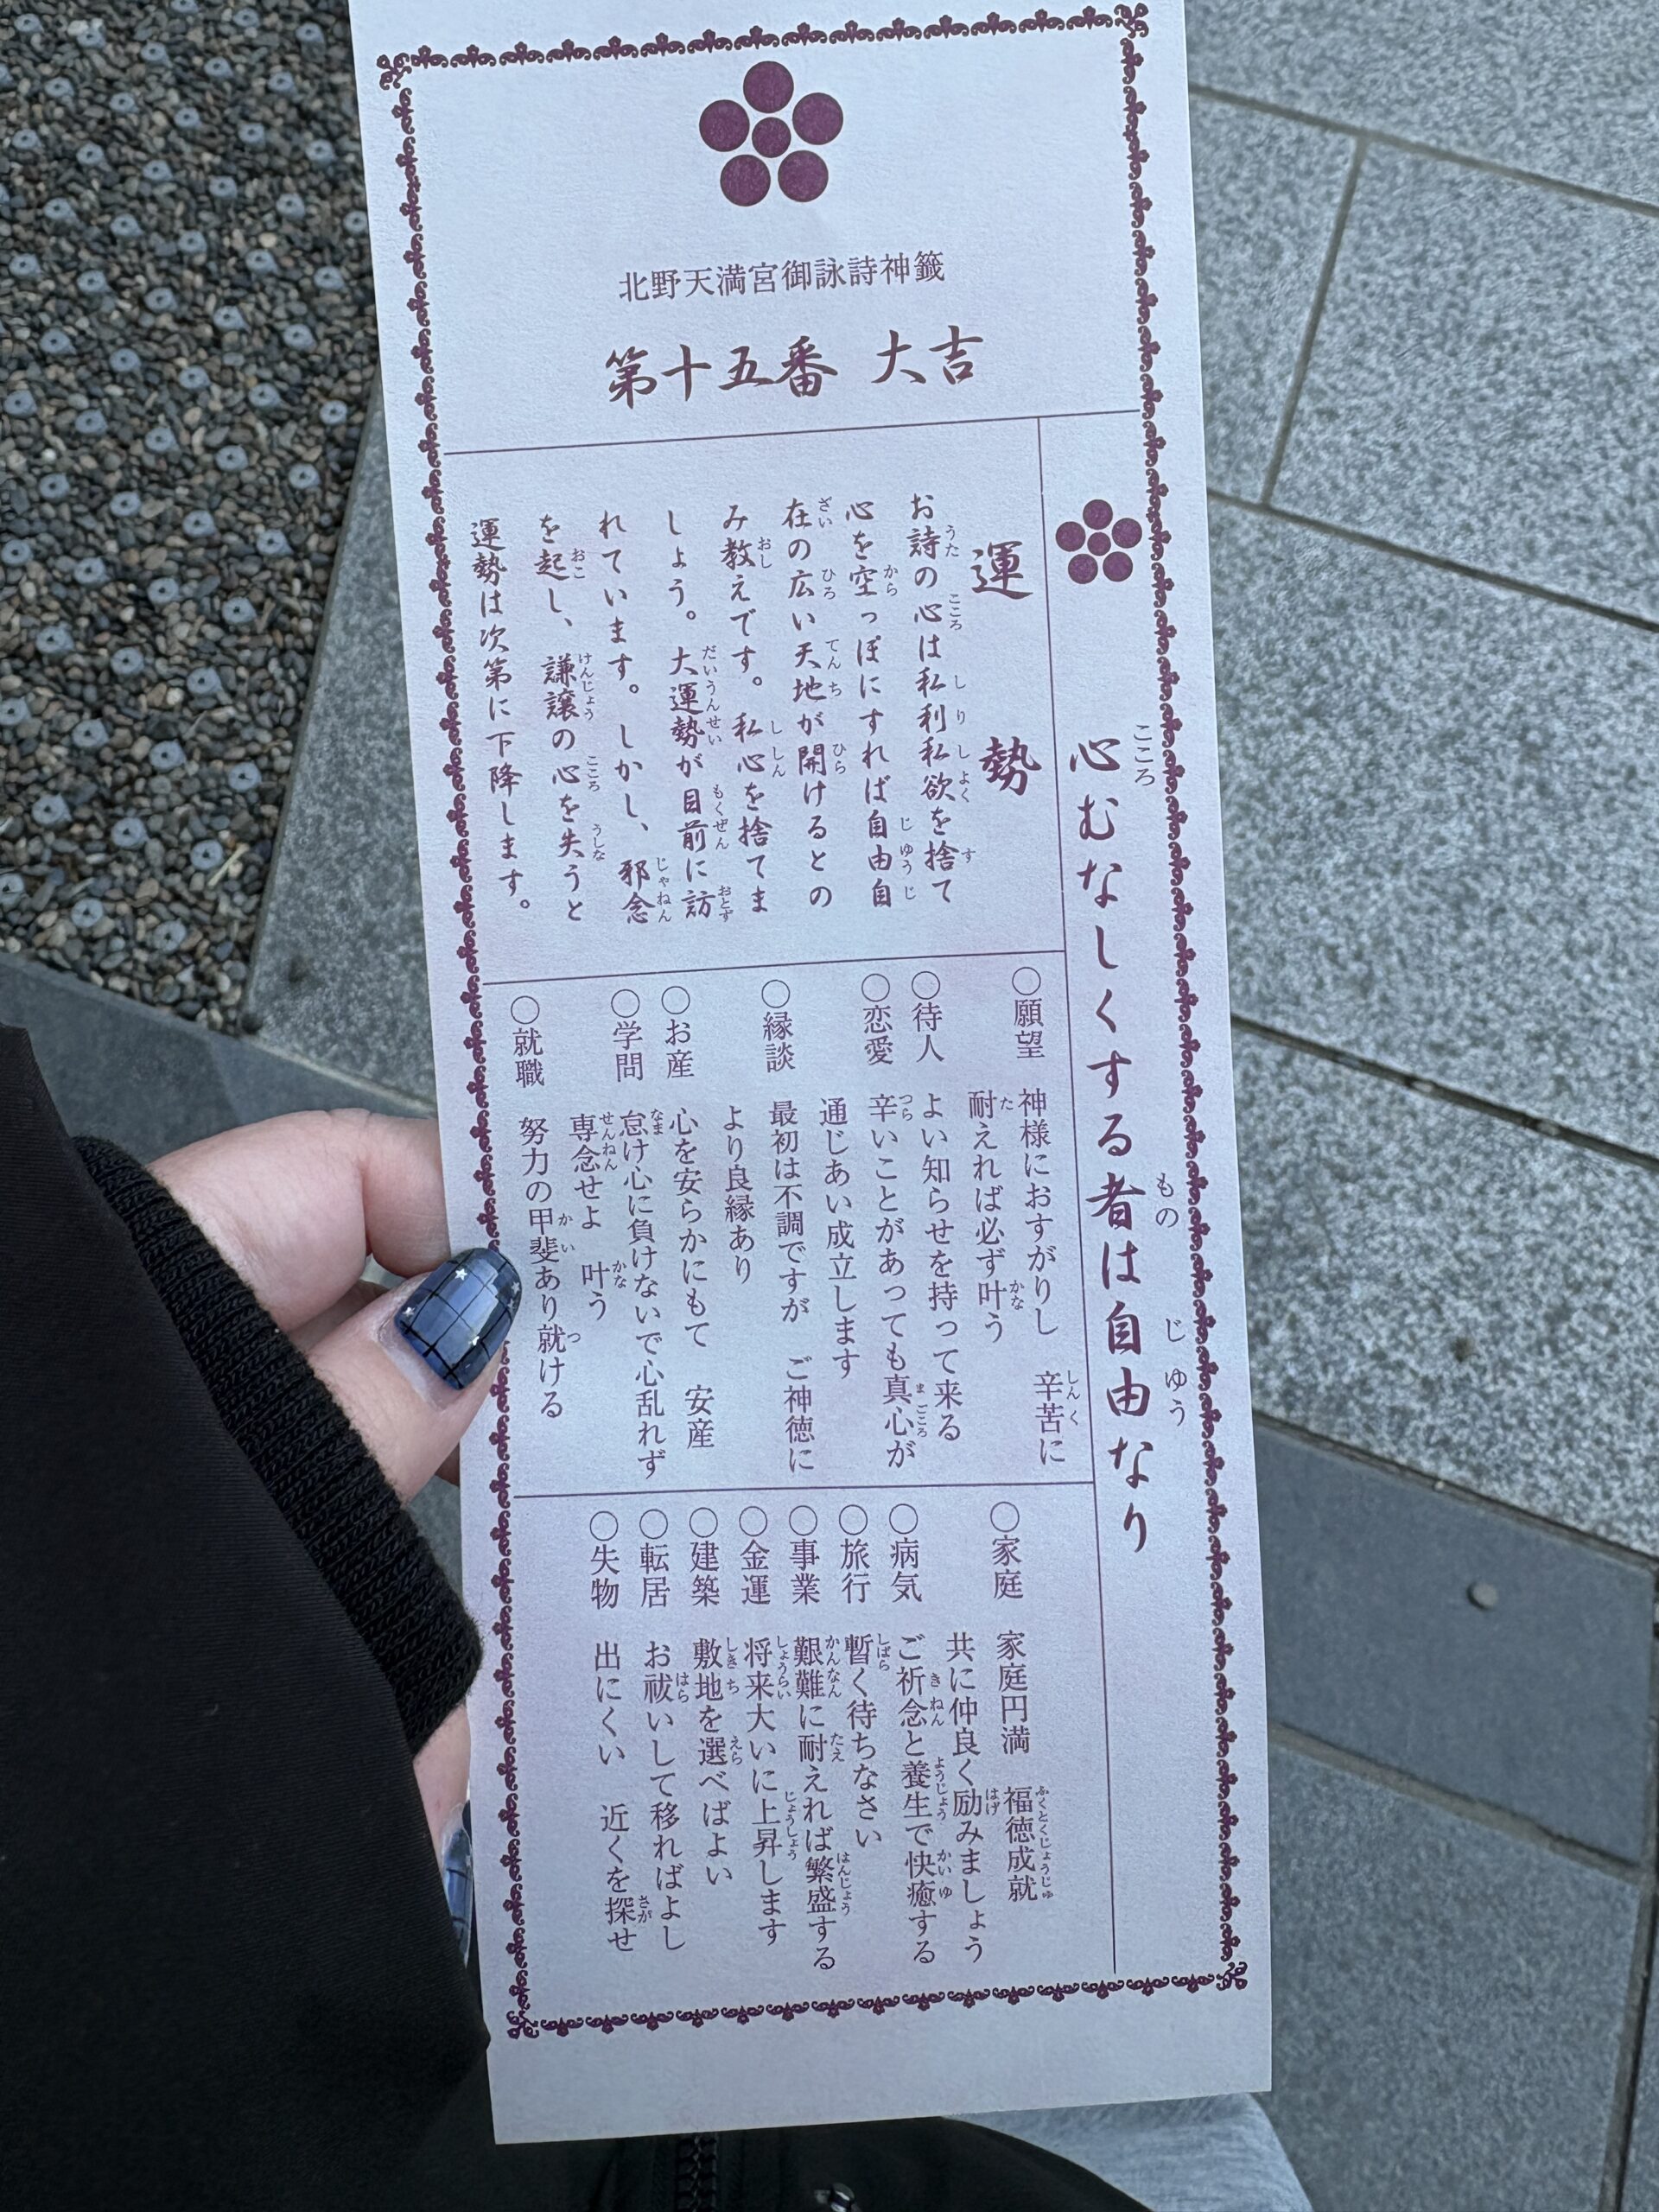 北野天満宮御詠詩神籤
第十五番 大吉
心むなしくする者は自由なり
運勢
お詩の心は私利私欲を捨て
心を空っぽにすれば自由自
在の広い天地が開けるとの
み教えです。私心を捨てま
しょう。大運勢が目前に訪
れています。しかし、邪念
を起し、謙譲の心を失うと
運勢は次第に下降します。
○願望 神様におすがりし 辛苦に
耐えれば必ず叶う
○待人 よい知らせを持って来る
○恋愛 辛いことがあっても真心が
通じあい成立します
○縁談 最初は不調ですが ご神徳に
より良縁あり
○お産 心を安らかにもて 安産
○学問 怠け心に負けないで心乱れず
専念せよ 叶う
○就職 努力の甲斐あり就ける
○家庭 家庭円満 福徳成就
共に仲良く励みましょう
○病気 ご祈念と養生で快癒する
○旅行 暫く待ちなさい
○事業 艱難に耐えれば繁盛する
○金運 将来大いに上昇します
○建築 敷地を選べばよい
○転居 お祓いして移ればよし
○失物 出にくい 近くを探せ